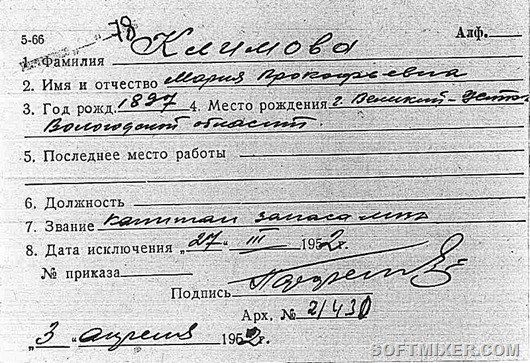 5-66 78 Алф.
1. Фамилия Климова
2. Имя и отчество Мария Прокофьевна
3. Год рожд. 1897 4. Место рождения г. Великий-Устюг
Вологодской области.
5. Последнее место работы
6. Должность
7. Звание капитан запаса
8. Дата исключения „27" III 1952г.
№ приказа
Подпись
Арх. № 21430
„3" апреля 1962г.
SOFTMIXER.COM